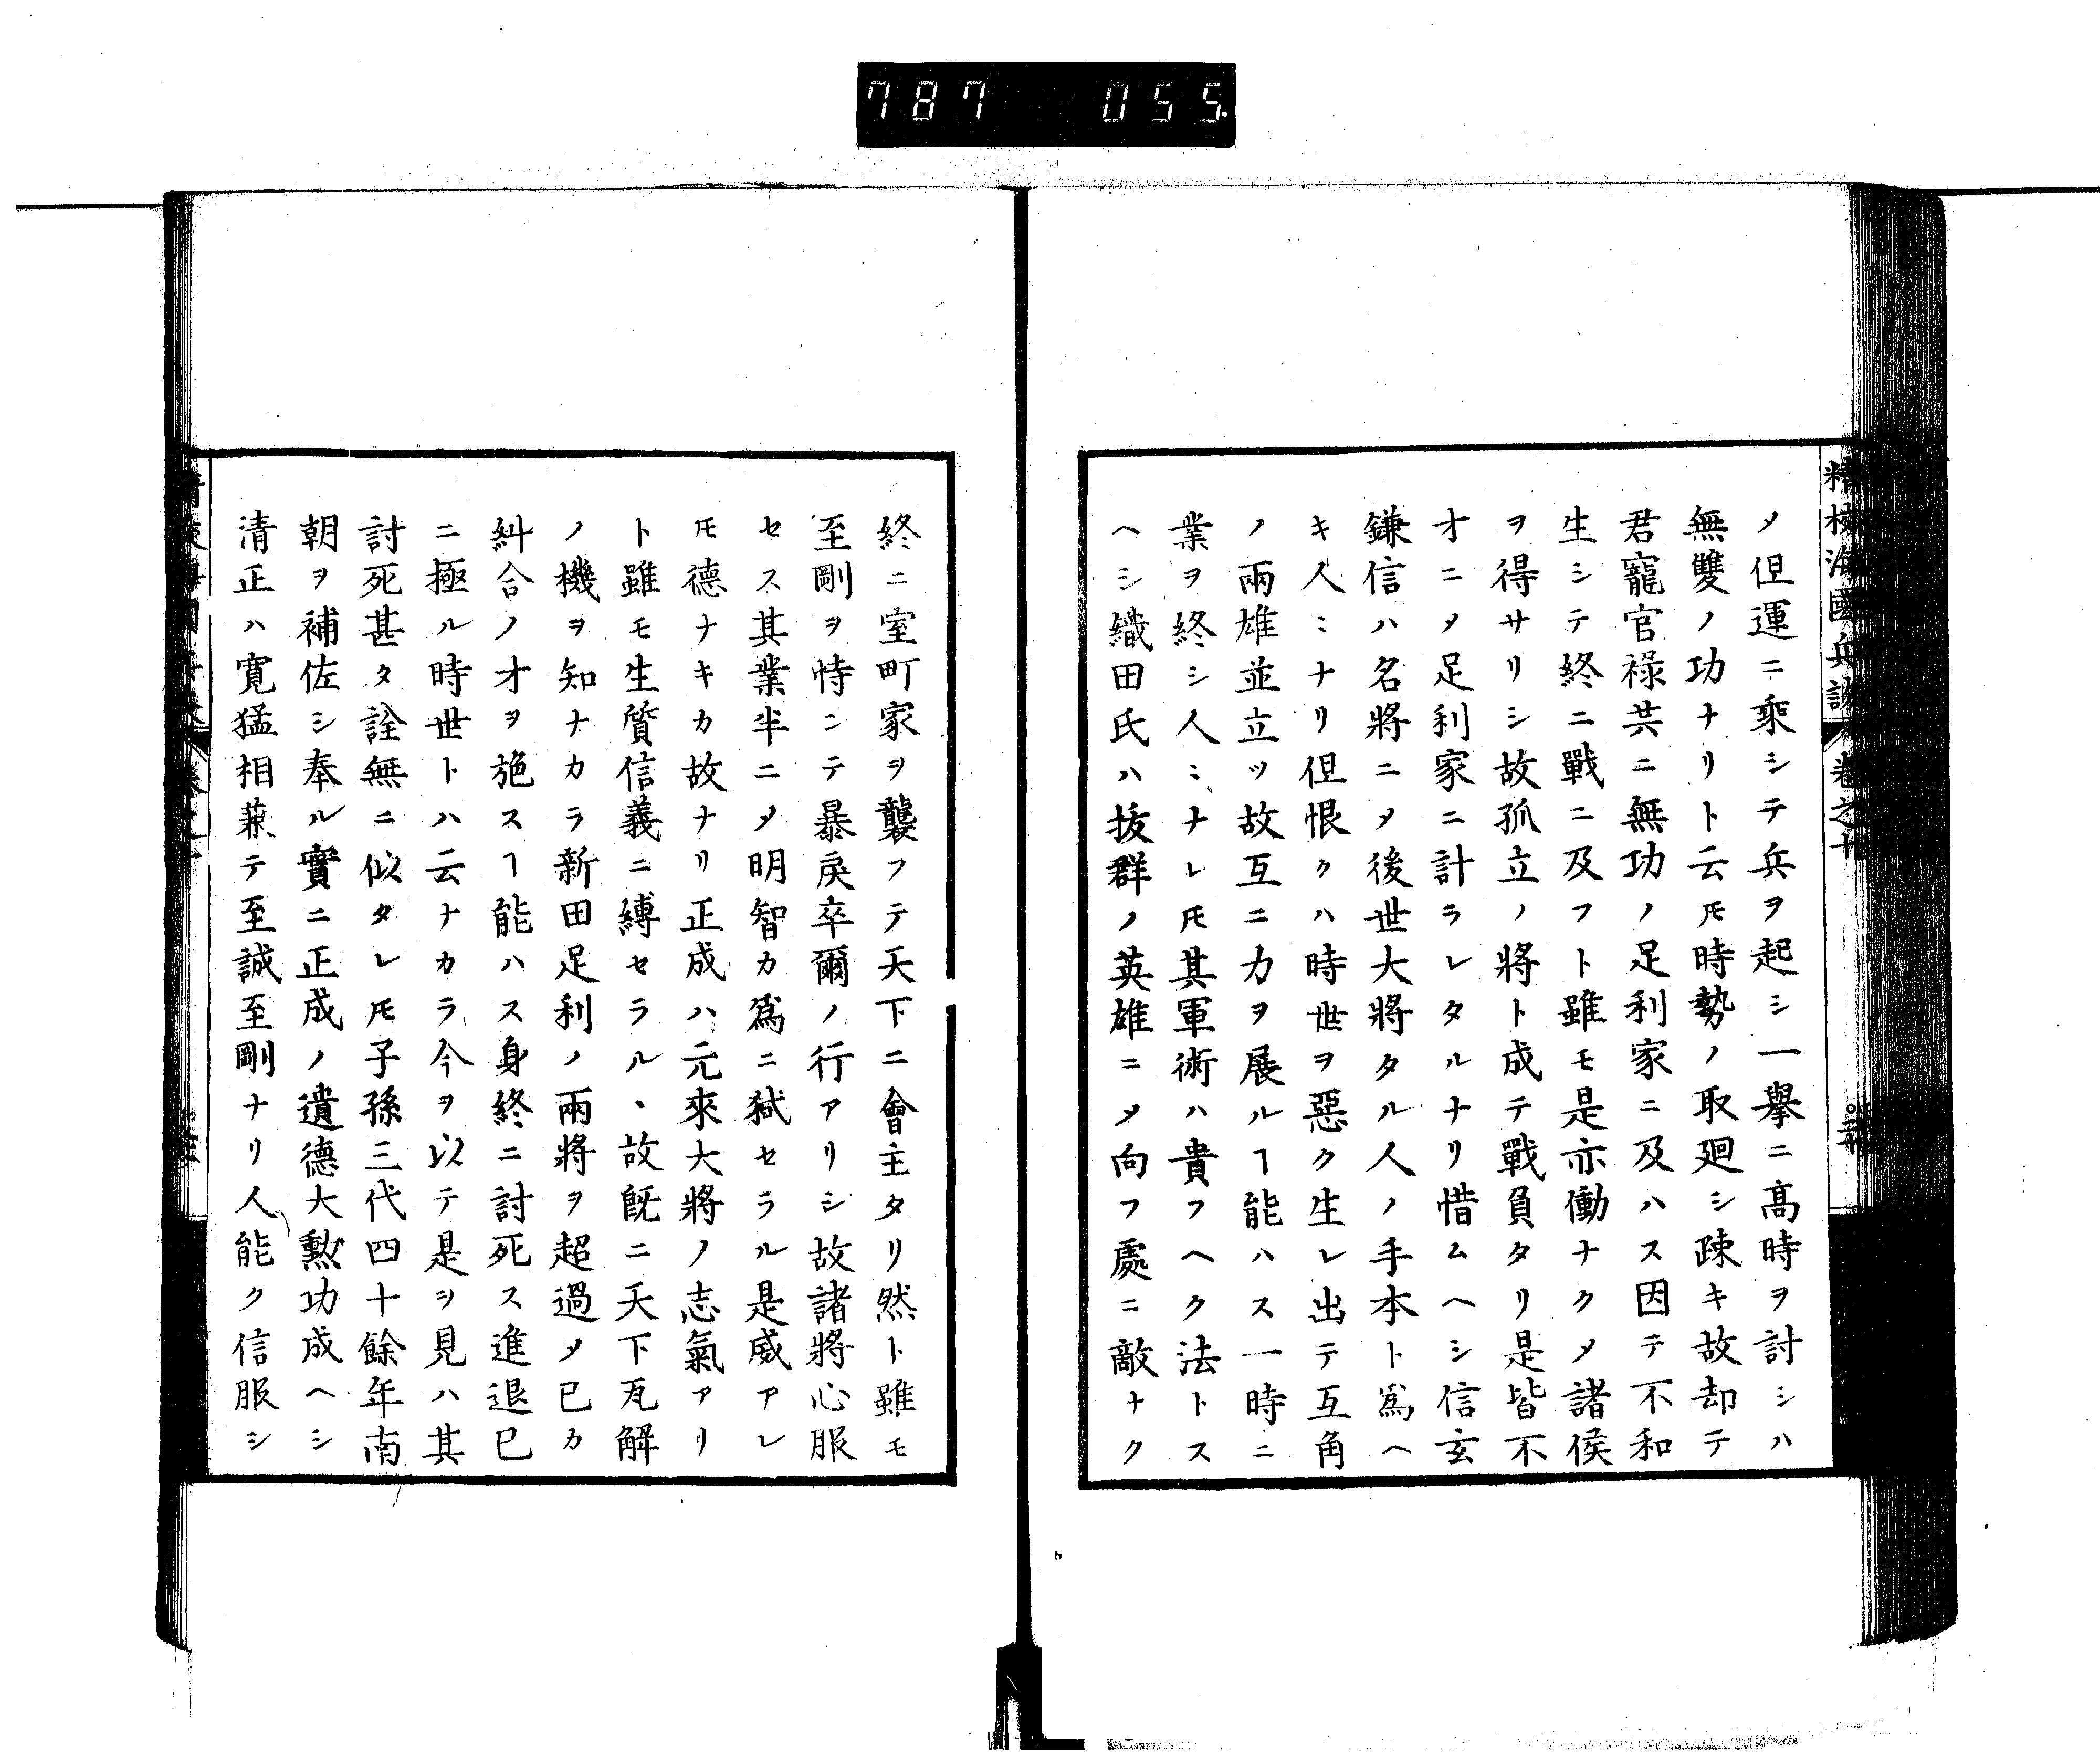 787 055
精校海國兵談 卷之十
〆但運ニ乘シテ兵ヲ起シ一擧ニ高時ヲ討シハ
無雙ノ功ナリト云𪜈時勢ノ取廻シ疎キ故却テ
君寵官祿共ニ無功ノ足利家ニ及ハス因テ不和
生シテ終ニ戰ニ及フト雖モ是亦働ナクメ諸侯
ヲ得サリシ故孤立ノ將ト成テ戰負タリ是皆不
才ニメ足利家ニ計ラレタルナリ惜ムヘシ信玄
鎌信ハ名將ニメ後世大將タル人ノ手本ト爲ヘ
キ人ミナリ但恨クハ時世ヲ惡ク生レ出テ互角
ノ兩雄並立ツ故互ニ力ヲ展ルヿ能ハス一時ニ
業ヲ終シ人ミナレ𪜈其軍術ハ貴フヘク法トス
ヘシ織田氏ハ拔群ノ英雄ニメ向フ處ニ敵ナク
終ニ室町家ヲ襲フテ天下ニ會主タリ然ト雖モ
至剛ヲ恃ンテ暴戻卒爾ノ行アリシ故諸將心服
セス其業半ニメ明智カ爲ニ弑セラル是威アレ
𪜈德ナキカ故ナリ正成ハ元來大將ノ志氣アリ
ト雖モ生質信義ニ縛セラルヽ故既ニ天下瓦解
ノ機ヲ知ナカラ新田足利ノ兩將ヲ超過メ已カ
糾合ノ才ヲ施スヿ能ハス身終ニ討死ス進退已
ニ極ル時世トハ云ナカラ今ヲ以テ是ヲ見ハ其
討死甚タ詮無ニ似タレ𪜈子孫三代四十餘年南
朝ヲ補佐シ奉ル實ニ正成ノ遺德大勲功成ヘシ
清正ハ寛猛相兼テ至誠至剛ナリ人能ク信服シ